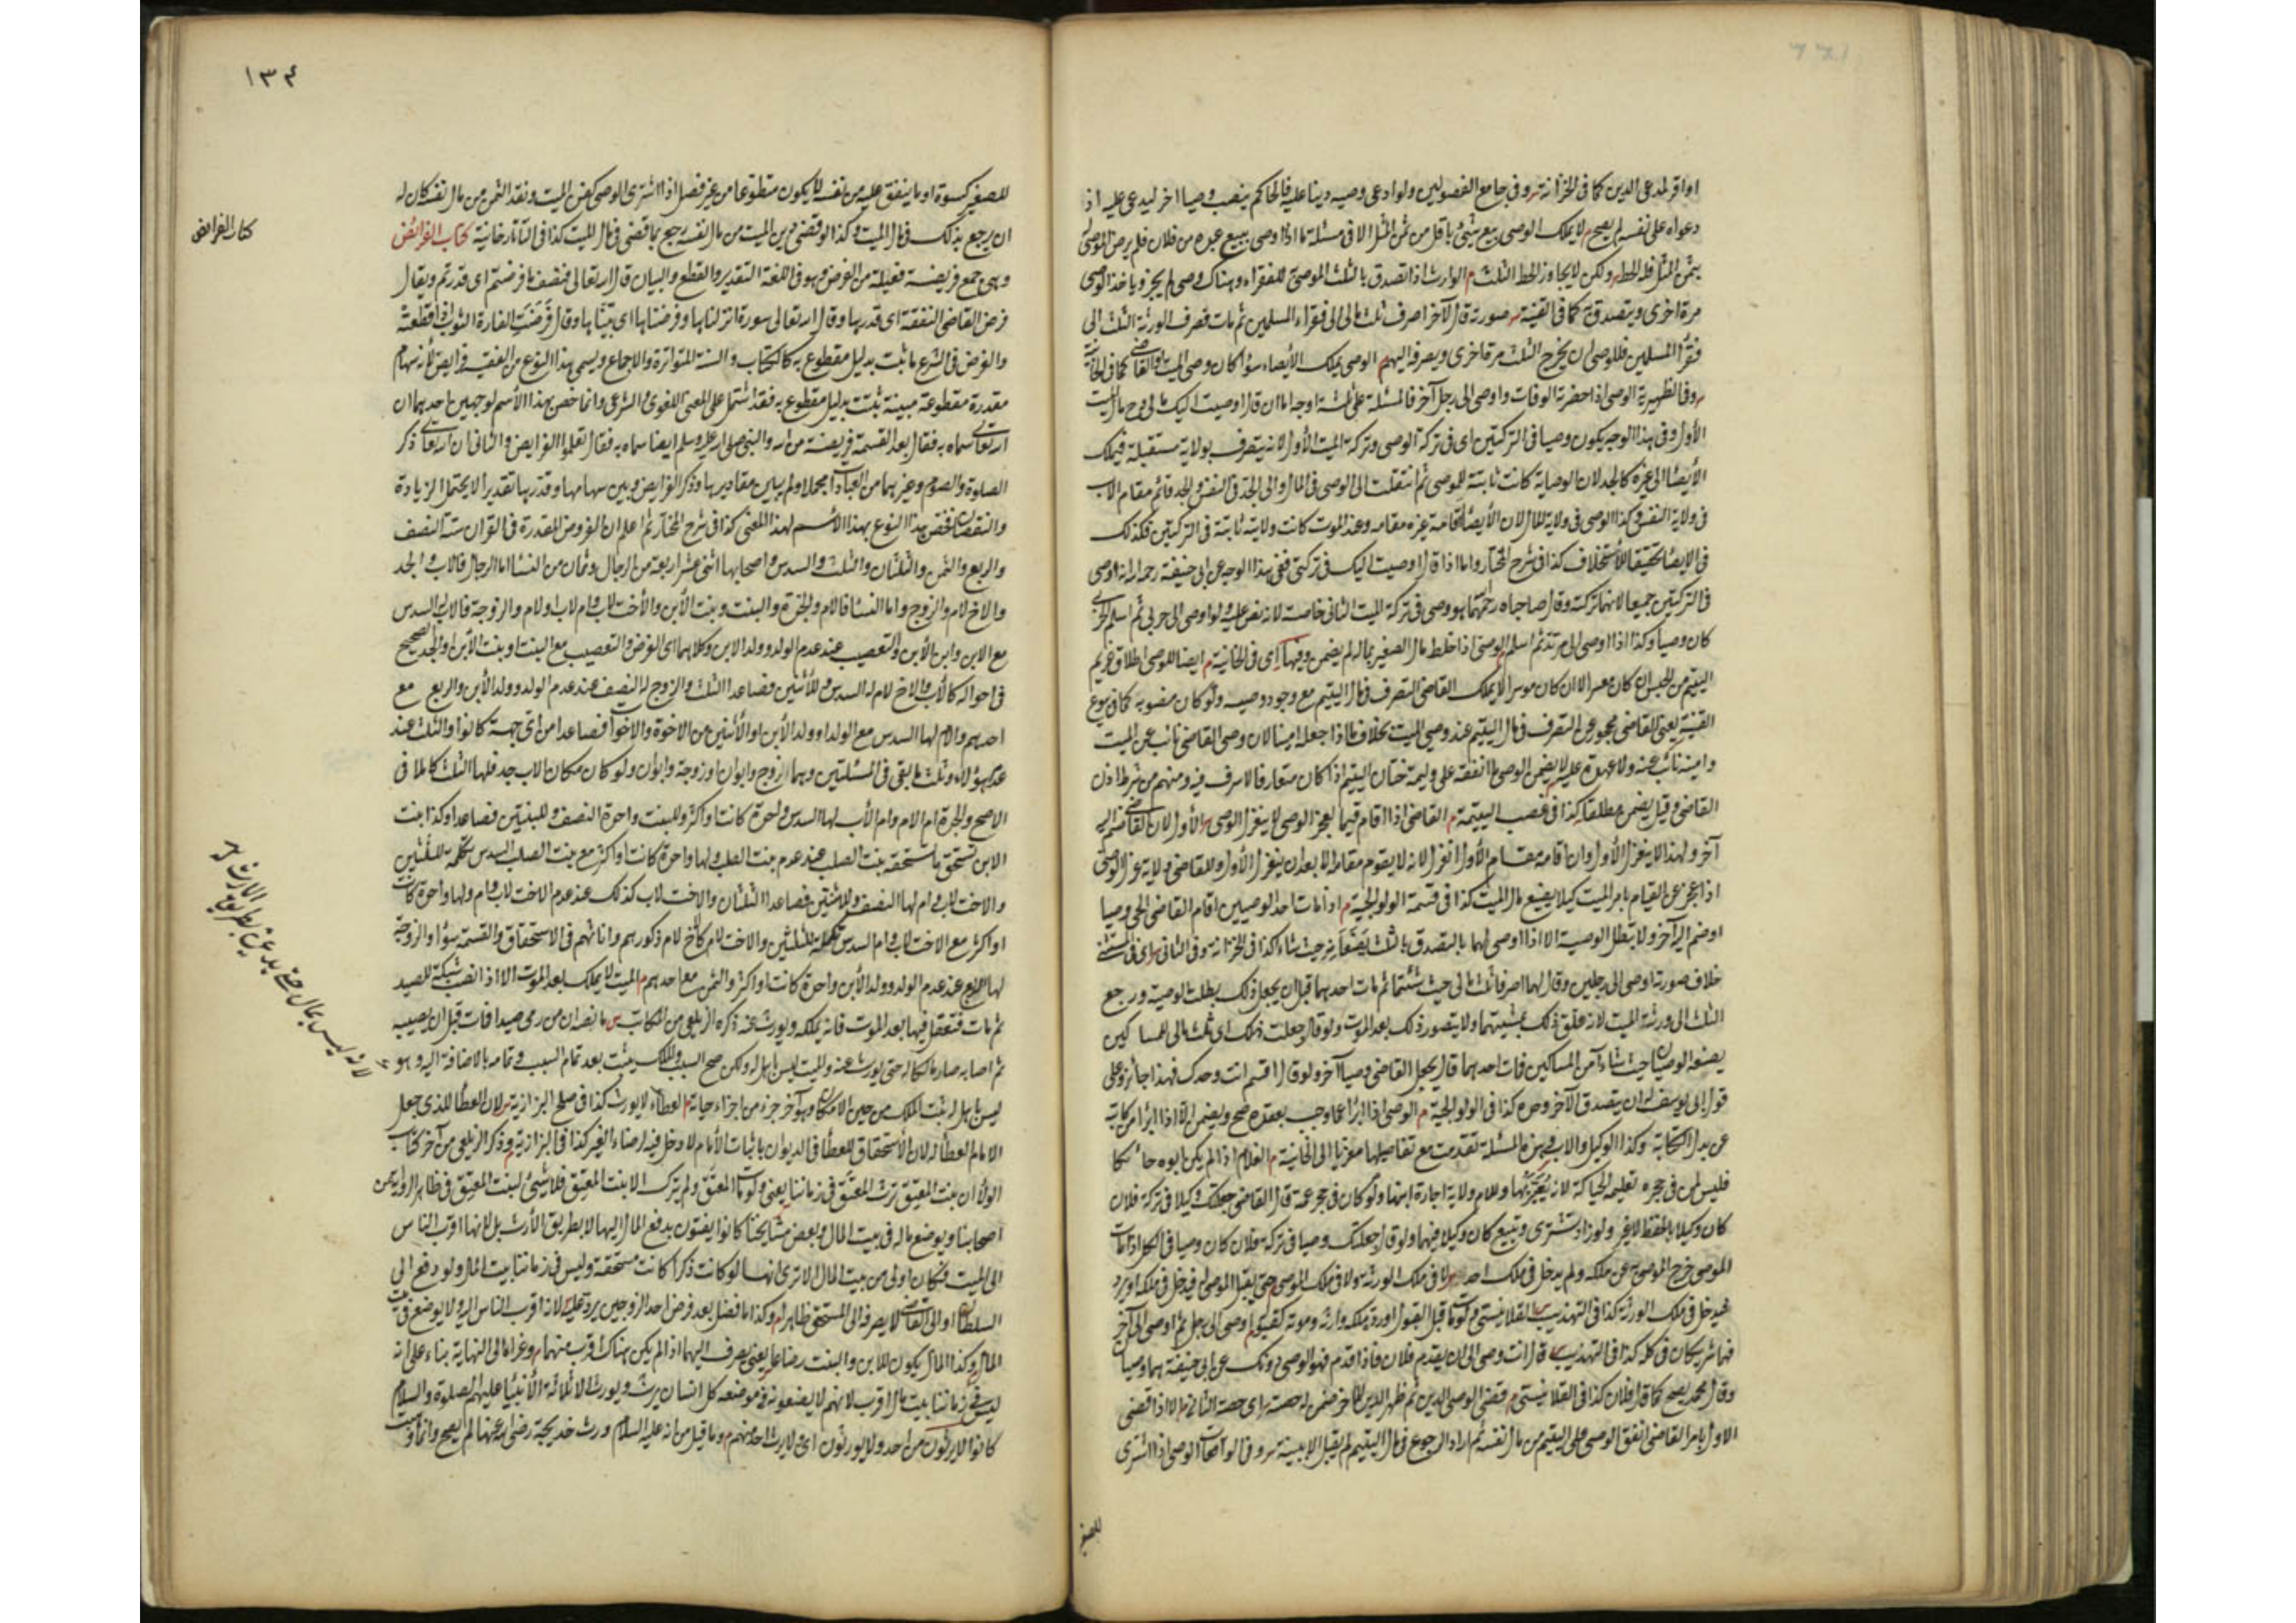 او اقر لمدعى الدين كما فى الخزانة وفى جامع الفصولين ولو ادعى وصيه دينا عليه فالحاكم ينصب وصيا اخر ليدعى عليه اذ
دعواه على نفسه لم يصح م لا يملك الوصى بيع شئ باقل من ثمن المثل الا فى مسئلة ما اذا اوصى ببيع عبده من فلان فلم يرض الموصى له
بثمن المثل فله الحط ولكن لا يجاوز الحط الثلث م الوارث اذا تصدق بالثلث الموصى للفقراء وهناك وصى لم يجز وياخذ الوصى
مرة اخرى ويتصدق كما فى القنية صورته قال لآخر اصرف ثلث مالى الى فقراء المسلمين ثم مات فصرف الورثة الثلث الى
فقراء المسلمين فللوصى ان يخرج الثلث مرة اخرى ويصرفه اليهم م الوصى يملك الايصاء سواء كان وصى الميت او القاضى كما فى الخانية
وفى الظهيرية الوصى اذا حضرته الوفات واوصى الى رجل آخر فالمسئلة على ثلثة اوجه اما ان قال اوصيت اليك فى مالى وفى مال الميت
الأول وفى هذا الوجه يكون وصيا فى التركتين اى فى تركة الوصى وتركة الميت الأول لانه يتصرف بولاية مستقبلة فيملك
الأيصاء الى غيره كالجد لان الوصاية كانت ثابتة للموصى ثم انتقلت الى الوصى فى المال والى الجد فى النفس والجد قائم مقام الاب
فى ولاية النفس وكذا الوصى فى ولاية المال لان الأيصاء اقامة غيره مقامه وعند الموت كانت ولايته ثابتة فى التركتين فكذلك
فى الايصاء تحقيقا للأستخلاف كذا فى شرح المختار واما اذا قال اوصيت اليك فى تركتى ففى هذا الوجه عن ابى حنيفة رحمه الله انه اوصى
فى التركتين جميعا لانهما تركته وقال صاحباه رحمهما هو وصى فى تركة الميت الثانى خاصة لانه نص عليه ولو اوصى الى حربى ثم اسلم الحربى
كان وصيا وكذا اذا اوصى الى مرتد ثم اسلم م الوصى اذا خلط مال الصغير بماله لم يضمن وفيها اى فى الخانية م ايضا للوصى اطلاق غريم
اليتيم من الحبس ان كان معسرا لا ان كان موسرا لا يملك القاضى التصرف فى مال اليتيم مع وجود وصيه ولو كان منصوبه كما فى بيوع
القنية يعنى القاضى محجور عن التصرف فى مال اليتيم عند وصى الميت بخلاف ما اذا جعله امينا لان وصى القاضى نائب عن الميت
وامينه نائب عنه ولا عهدة عليه لا يضمن الوصى ما انفقه على وليمة ختان اليتيم اذا كان متعارفا لا سرف فيه ومنهم من شرط اذن
القاضى وقيل يضمن مطلقا كذا فى غصب اليتيمة م القاضى اذا اقام قيما لعجز الوصى لا ينعزل الوصى الأول لان القاضى ضم اليه
آخر ولهذا لا ينعزل الأول وان اقامه مقام الأول انعزل لانه لا يقوم مقامه الا بعد ان ينعزل الأول وللقاضى ولاية عزل الوصى
اذا عجز عن القيام بامر الميت كيلا يضيع مال الميت كذا فى قسمة الولوالجية م اذا مات احد الوصيين اقام القاضى الحى وصيا
او ضم اليه آخر ولا تبطل الوصية الا اذا اوصى لهما بالتصدق بالثلث يضعانه حيث شاءا كذا فى الخزانة وفى الثانى
خلاف صورته اوصى الى رجلين وقال لهما اصرفا ثلث مالى حيث شئتما ثم مات احدهما قبل ان يجعلا ذلك بطلت الوصية ورجع
الثلث الى ورثة الميت لانه علق ذلك بمشيتهما ولا يتصور ذلك بعد الموت ولو قال جعلت ذلك اى ثلث مالى للمساكين
يضعه الوصيان حيث شاءا من المساكين فمات احدهما قال يجعل القاضى وصيا آخر ولو قال اقسم انت وحدك فهذا جائز وعلى
قول ابى يوسف له ان يتصدق الآخر وحده كذا فى الولوالجية م الوصى اذا ابرأ عما وجب بعقده صح ويضمن الا اذا ابرأ من كاتبه
عن بدل الكتابة وكذا الوكيل والاب وهذه المسئلة تقدمت مع تفاصيلها معزيا الى الخانية م الغلام اذا لم يكن ابوه حائكا
فليس لمن فى حجره تعليم الحياكة لانه يعير بها وللام ولاية اجارة ابنها ولو كان فى حجر عمة قال القاضى جعلتك وكيلا فى تركة فلان
كان وكيلا بالحفظ لا غير ولو زاد تشترى وتبيع كان وكيلا فيهما ولو قال جعلتك وصيا فى تركة فلان كان وصيا فى الكل اذا مات
الموصى خرج الموصى به عن ملكه ولم يدخل فى ملك احد لا فى ملك الورثة ولا فى ملك الموصى له حتى يقبل الموصى له فيدخل فى ملكه او يرد
فيدخل فى ملك الورثة كذا فى التهذيب القلانسى ولو مات قبل القبول او رده ملكه وارثه وموته كقبوله م اوصى الى رجل ثم اوصى الى آخر
فهما شريكان فى كله كذا فى التهذيب قال انت وصى الى ان يقدم فلان فاذا قدم فهو الوصى دونك عن ابى حنيفة هما وصيان
وقال محمد يصح كما قال فلان كذا فى القلانسى م قضى الوصى الدين ثم ظهر الدين لآخر ضمن له حصته اى حصة الثانى الا اذا قضى
الاول بامر القاضى انفق الوصى على اليتيم من مال نفسه ثم اراد الرجوع فى مال اليتيم لم يقبل الا ببينة وفى الواقعات الوصى اذا اشترى
للصغير
١٣٤
للصغير كسوة او ما ينفق عليه من نفسه لا يكون متطوعا من غير فصل اذا اشترى الوصى كفن الميت ونقد الثمن من مال نفسه كان له
ان يرجع بذلك فى مال الميت وكذا لو قضى دين الميت من مال نفسه رجع بما قضى فى مال الميت كذا فى التاتارخانية كتاب الفرائض
كتاب الفرائض
وهى جمع فريضة فعيلة من الفرض وهو فى اللغة التقدير والقطع والبيان قال الله تعالى فنصف ما فرضتم اى قدرتم ويقال
فرض القاضى النفقة اى قدرها وقال الله تعالى سورة انزلناها وفرضناها اى بيناها وقال فرضت الفارة الثوب اذا قطعته
والفرض فى الشرع ما ثبت بدليل مقطوع به كالكتاب والسنة المتواترة والاجماع ويسمى هذا النوع من الفقه فرايض لانه سهام
مقدرة مقطوعة مبينة ثبتت بدليل مقطوع به فقد اشتمل على المعنى اللغوى والشرعى وانما خص بهذا الأسم لوجهين احدهما ان
الله تعالى سماه به فقال بعد القسمة فريضة من الله والنبى صلى الله عليه وسلم ايضا سماه به فقال تعلموا الفرايض والثانى ان الله تعالى ذكر
الصلوة والصوم وغيرهما من العبادات مجملا ولم يبين مقاديرها وذكر الفرايض وبين سهامها وقدرها تقديرا لا يحتمل الزيادة
والنقصان فخص هذا النوع بهذا الأسم لهذا المعنى كذا فى شرح المختار ثم اعلم ان الفروض المقدرة فى القران ستة النصف
والربع والثمن والثلثان والثلث والسدس واصحابها اثنى عشر اربعة من الرجال وثمان من النساء اما الرجال فالاب والجد
والاخ لام والزوج واما النساء فالام والجدة والبنت وبنت الأبن والأخت لاب وام ولاب ولام والزوجة فالاب له السدس
مع الابن وابن الأبن والتعصيب عند عدم الولد وولد الابن وكلاهما اى الفرض والتعصيب مع البنت او بنت الأبن والجد الصحيح
فى احواله كالأب والاخ لام له السدس وللأثنين فصاعدا الثلث والزوج له النصف عند عدم الولد وولد الأبن والربع مع
احدهم والام لها السدس مع الولد او ولد الأبن او الأثنين من الاخوة والاخوات فصاعدا من اى جهة كانوا والثلث عند
عدم هؤلاء وثلث ما بقى فى المسئلتين وهما زوج وابوان او زوجة وابوان ولو كان مكان الاب جد فلها الثلث كاملا فى
الاصح والجدة ام الام وام الأب لها السدس واحدة كانت او اكثر وللبنت واحدة النصف وللبنتين فصاعدا وكذا بنت
الابن تستحق ما تستحقه بنت الصلب عند عدم بنت الصلب ولها واحدة كانت او اكثر مع بنت الصلب السدس تكملة للثلثين
والاخت لاب وام لها النصف وللأثنتين فصاعدا الثلثان والاخت لاب كذلك عند عدم الاخت لاب وام ولها واحدة كانت
او اكثر مع الاخت لاب وام السدس تكملة للثلثين والاخت لام كالاخ لام ذكورهم واناثهم فى الاستحقاق والقسمة سواء والزوجة
لها الربع عند عدم الولد وولد الأبن واحدة كانت او اكثر والثمن مع احدهم م الميت لا يملك بعد الموت الا اذا نصب شبكة للصيد
ثم مات فتعقل فيها بعد الموت فانه يملكه ويورث عنه ذكره الزيلعى من المكاتب س ما نصه ان من رمى صيدا فمات قبل ان يصيبه
ثم اصابه صار مالكا له حتى يورث عنه والميت ليس باهل له ولكن صح السبب والملك يثبت بعد تمام السبب وتمامه بالاضافة اليه وهو
ليس باهل له يثبت الملك من حين الامكان وهو آخر جزء من اجزاء حياته م العطاء لا يورث كذا فى صلح البزازية لان العطاء للذى جعل
الامام العطاء له لان الأستحقاق للعطاء فى الديوان باثبات الأمام لا دخل فيه لرضاء الغير كذا فى البزازية م وذكر الزيلعى من آخر كتاب
الولاء ان بنت المعتق ترث المعتق فى زماننا يعنى ولو مات المعتق ولم يترك الا بنت المعتق فلا شئ لبنت المعتق فى ظاهر الرواية من
اصحابنا ويوضع ماله فى بيت المال وبعض مشايخنا كانوا يفتون بدفع المال اليها لا بطريق الأرث بل لانها اقرب الناس
الى الميت فكان اولى من بيت المال الا ترى انها لو كانت ذكرا كانت مستحقة وليس فى زماننا بيت المال ولو دفع الى
السلطان او الى القاضى لا يصرفه الى المستحق ظاهرا م وكذا ما فضل بعد فرض احد الزوجين يرد عليه لانه اقرب الناس اليه ولا يوضع فى بيت
المال وكذا المال يكون للابن والبنت رضاعا يعنى يصرف اليهما اذا لم يكن هناك اقرب منهما وعزاه الى النهاية بناء على انه
ليس فى زماننا بيت مال اقرب لانهم لا يضعونه فى موضعه كل انسان يرث ويورث الا ثلاثة الأنبياء عليهم الصلوة والسلام
كانوا لا يرثون من احد ولا يورثون اى ولا يرث احد منهم م وما قيل من انه عليه السلام ورث خديجة رضى الله عنها لم يصح وانما وهبت
لانه ليس بمال حتى يدعى بطريق الارث